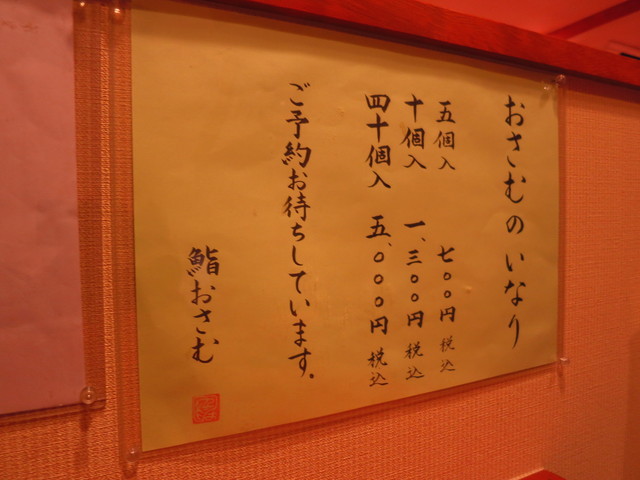 おさむのいなり
五個入 七〇〇円 税込
十個入 一、三〇〇円 税込
四十個入 五、〇〇〇円 税込
ご予約お待ちしています。
鮨おさむ